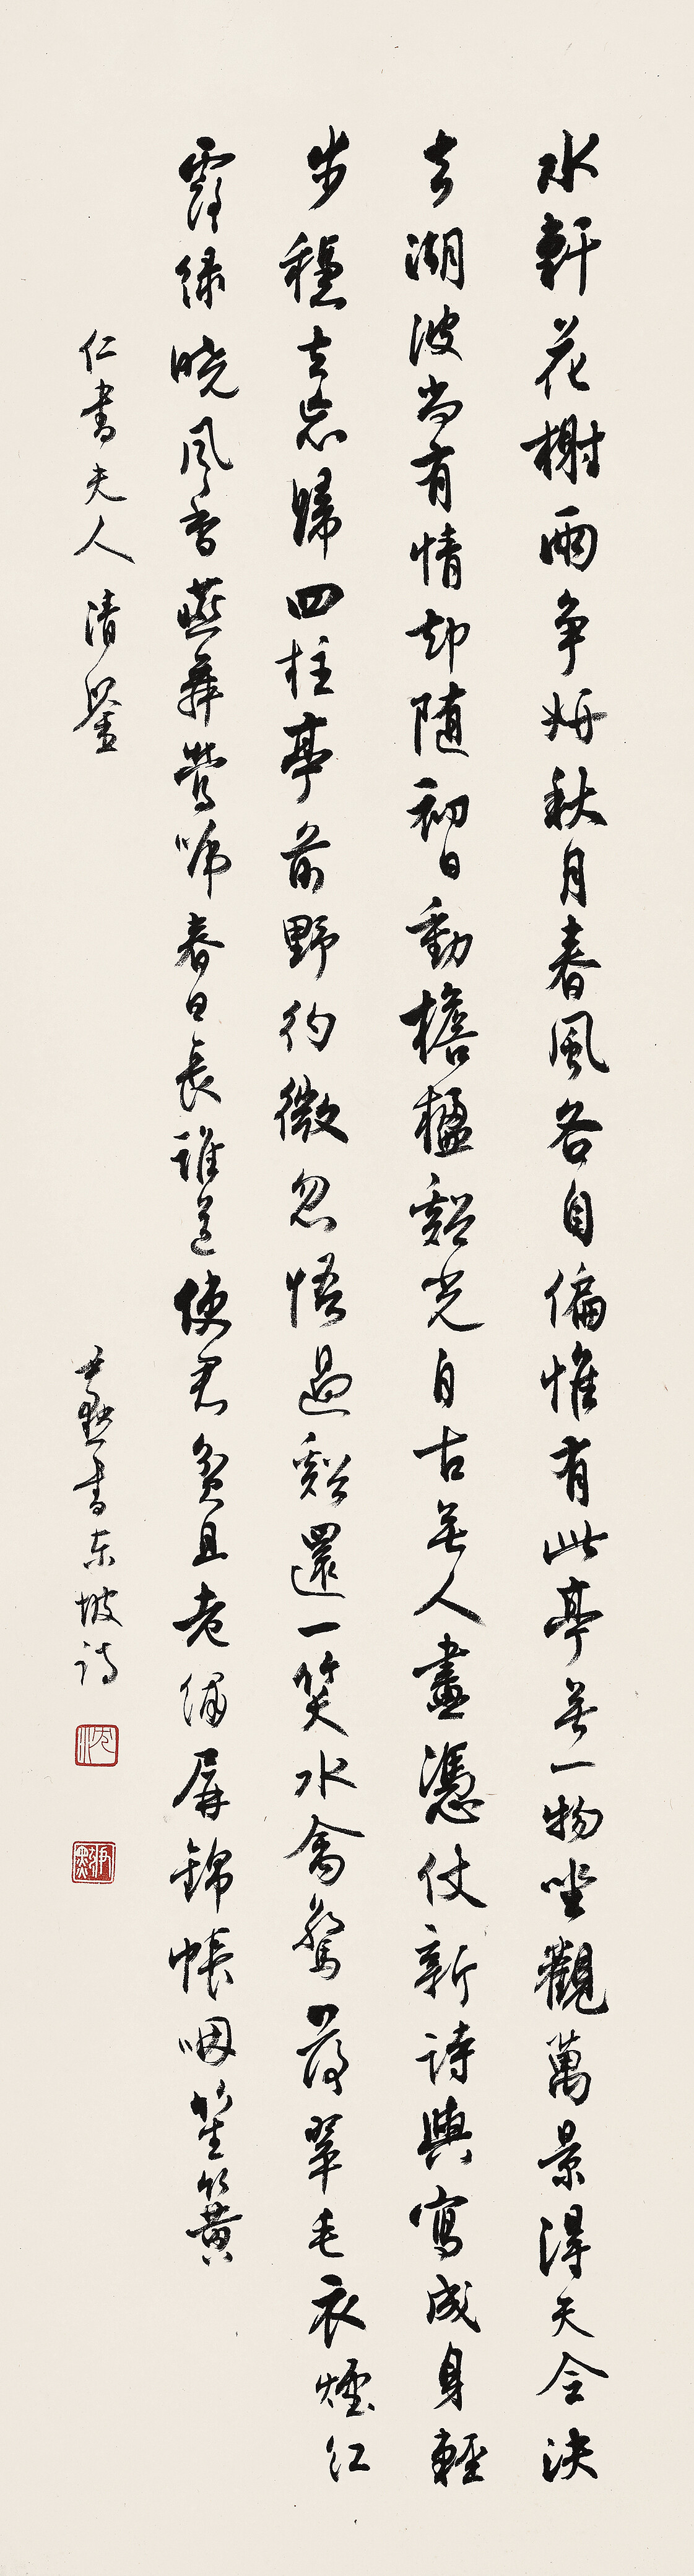 水軒花榭兩争妍秋月春風各自偏惟有此亭無一物坐觀萬景得天全決
去湖波尚有情却随初日動檐楹谿光自古無人畫憑仗新詩與寫成身輕
步穩去忘歸四柱亭前野彴微忽悟過谿還一笑水禽驚落翠毛衣煙紅
露绿晓风香燕舞鶯啼春日長誰道使君貧且老繡屏錦帳咽笙簧
仁書夫人清鑒
尹默書东坡诗
沈
尹默